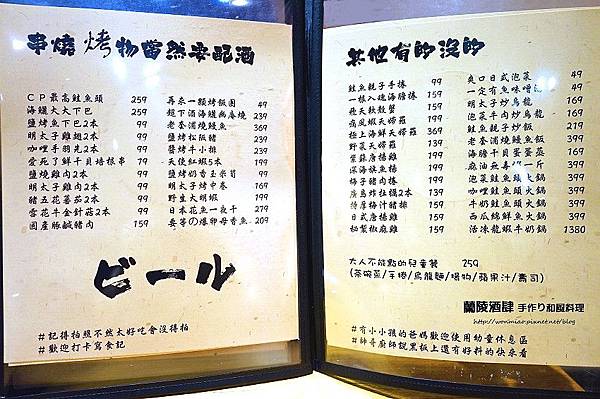 串燒 烤物當然要配酒
CP最高鮭魚頭 259
海鱺大大下巴 259
鹽烤魚下巴2本 99
明太子雞翅2本 99
咖哩手羽先2本 99
愛死了鮮干貝培根串 79
鹽燒雞肉2本 99
明太子雞肉2本 99
豬五花蕃茄2本 99
雪花牛金針菇2本 99
國產豚鹹豬肉 159
再來一顆烤飯團 49
超下酒海鱺 239
老套浦燒鰻魚 369
鹽烤松阪豬 239
醬烤牛小排 239
天使紅蝦5本 199
鹽烤奶香玉米筍 99
明太子烤中卷 169
野生大明蝦 199
日本花魚一夜干 279
要等の爆卵母香魚 209
ビール
#記得拍照不然太好吃會沒得拍
#歡迎打卡寫食記
其他有的沒的
鮭魚親子手捲 99
一根入魂海膽捲 159
飛天軟殼蟹 159
病瘋蝦天婦羅 199
極上海鮮天婦羅 269
野菜天婦羅 159
紫蘇唐揚雞 159
深海旗魚楊 159
柿子豬肉捲 159
廣島炸牡蠣2本 139
特厚梅汁豬排 159
日式唐揚雞 159
松葉椒麻雞 159
爽口日式泡菜 49
一定有魚味噌湯 49
明太子炒烏龍 169
泡菜牛肉炒烏龍 169
鮭魚親子炒飯 219
老套浦燒鰻魚飯 399
海膽干貝蛋蛋蒸 169
麻油無毒 一斤 399
泡菜鮭魚頭火鍋 399
咖哩鮭魚頭火鍋 399
牛奶鮭魚頭火鍋 399
西瓜綿鮮魚火鍋 399
活凍龍蝦牛奶鍋 1380
大人不能點的兒童餐 259
(茶碗蒸/手捲/烏龍麵/揚物/蘋果汁/壽司)
蘭陵酒肆 手作り和風料理
http://wonmiao.pixnet.net/blog
#有小小孩的爸媽歡迎使用幼童休息區
#帥哥廚師說黑板上還有好料的快來看